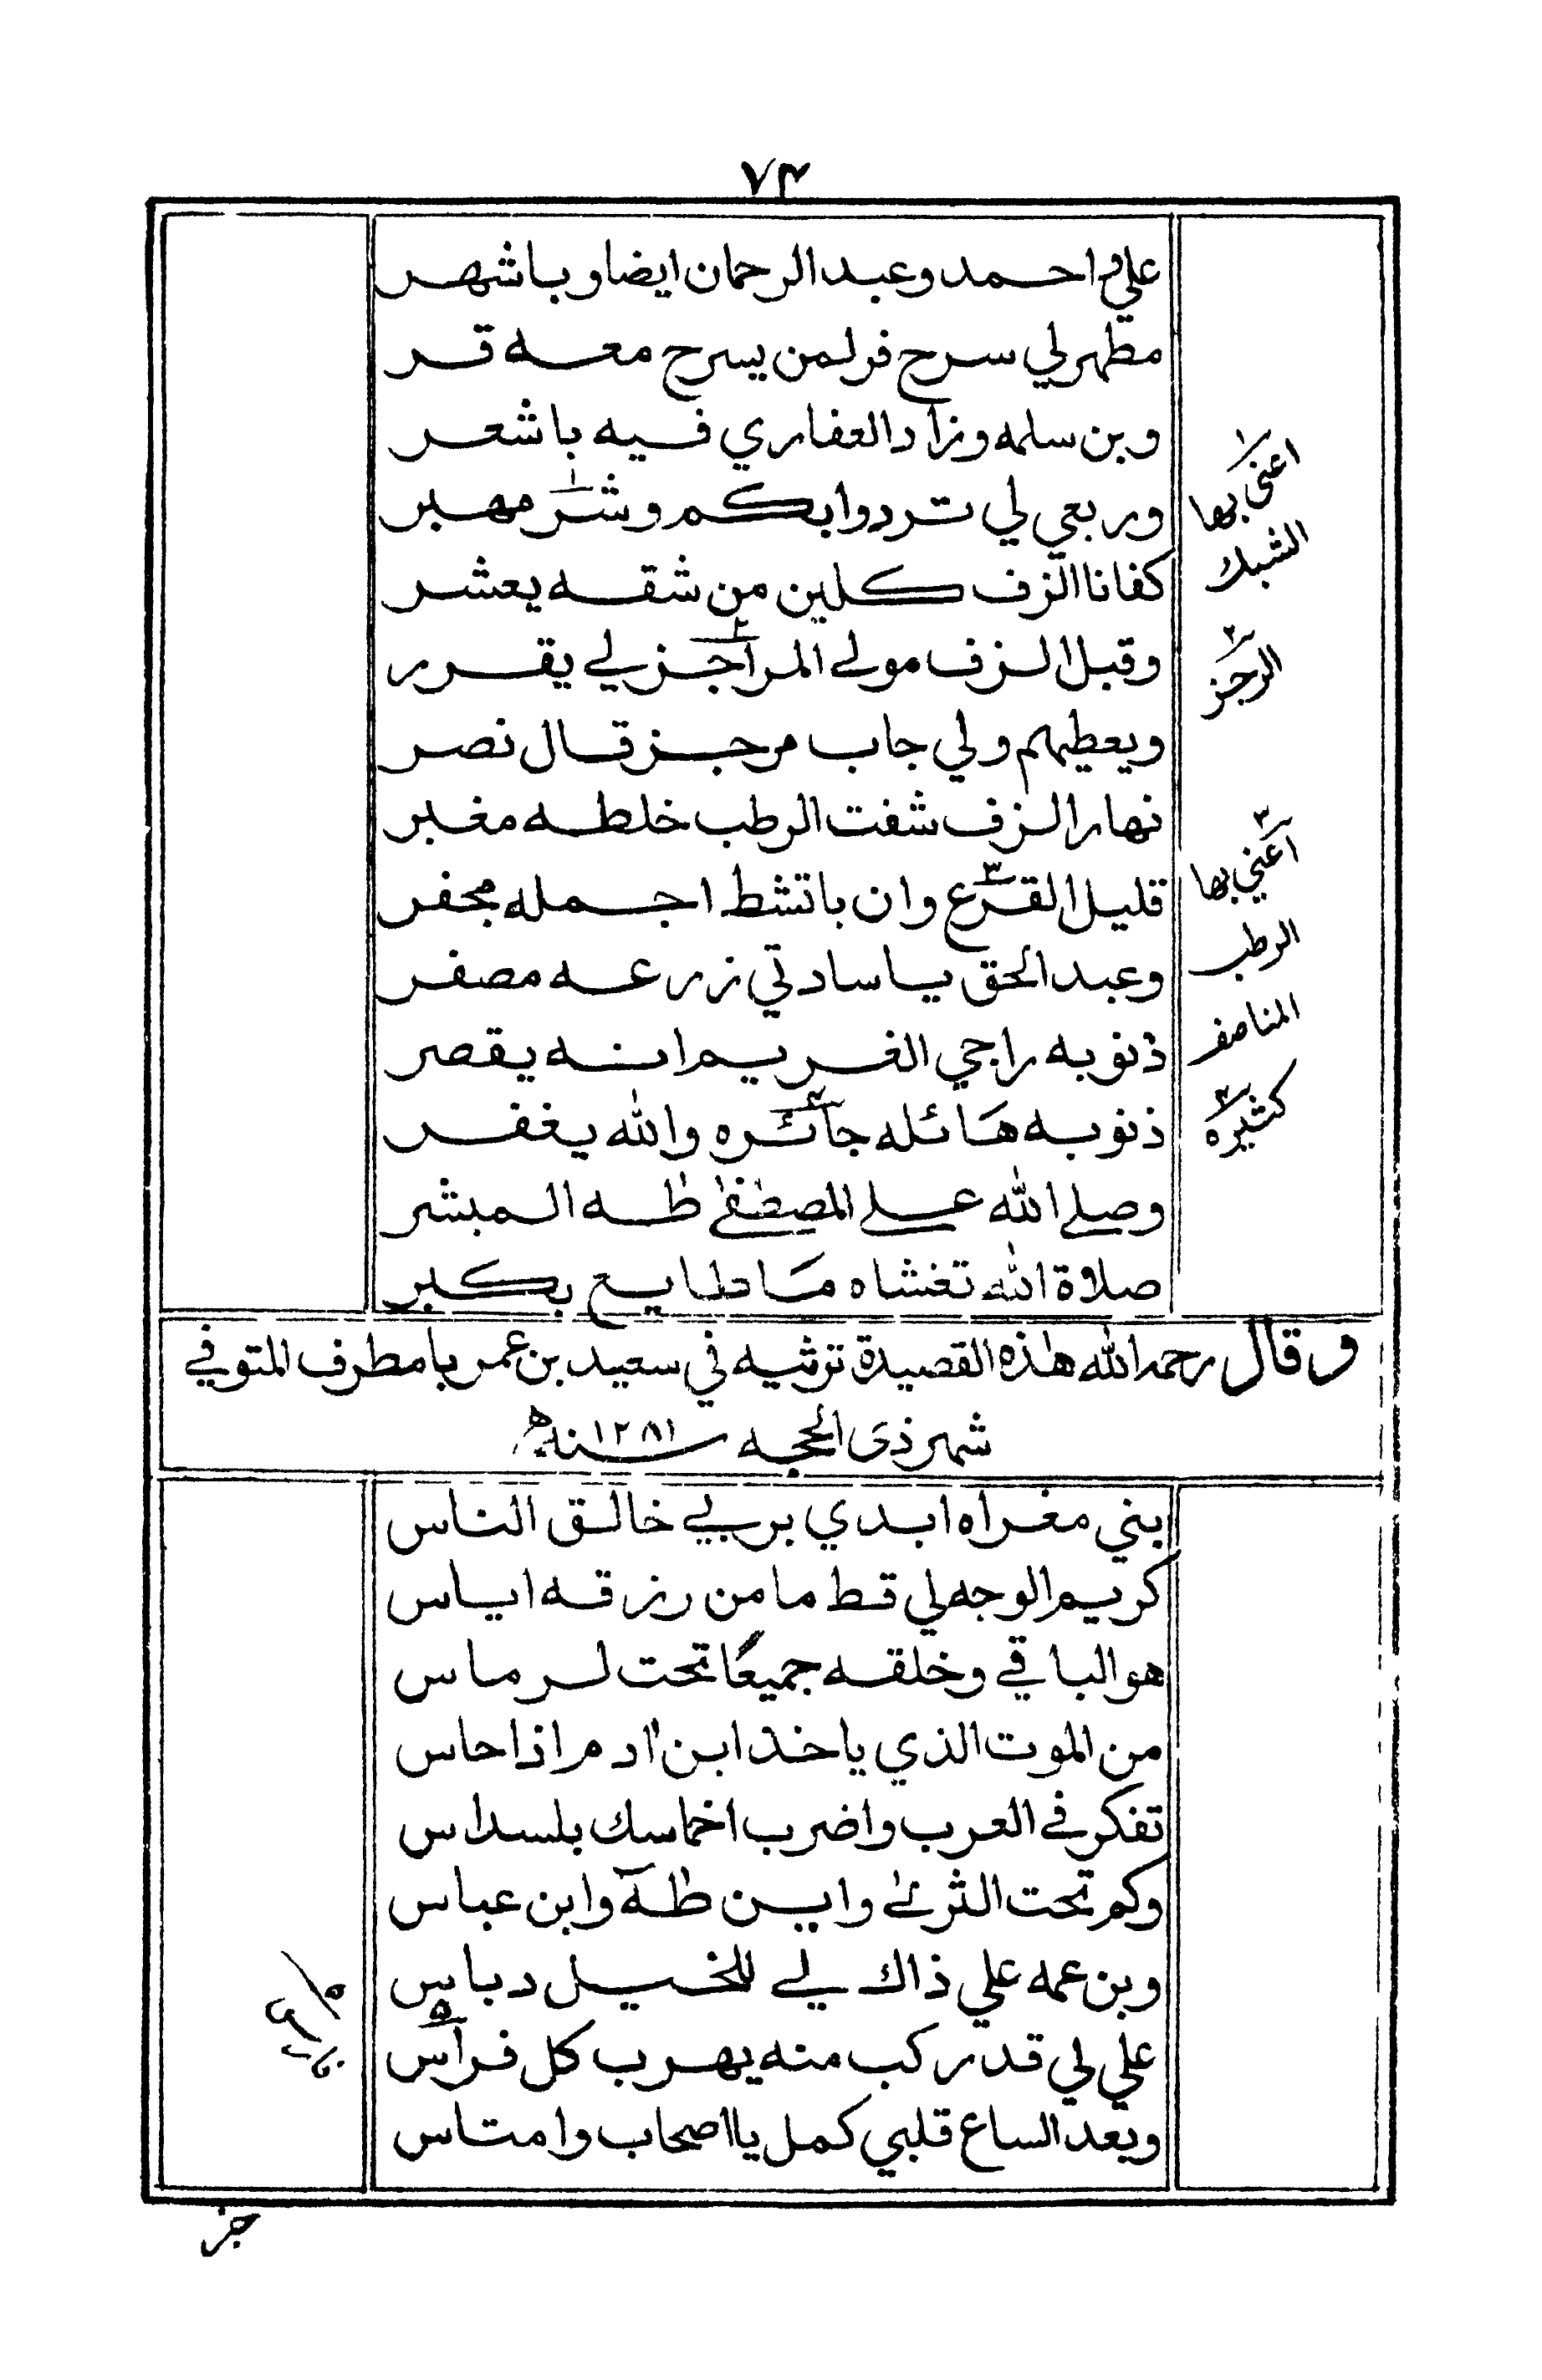 ٧٤
علي احمد وعبد الرحمان ايضا وباشهر
مطهر لي سرح فر لمن يسرح معه قر
وبن سلمه وزاد العفاري فيه باشعر
وربعي لي تردوا بكم وشر١ مهبر
كفانا الزف كلين من شقه يعشر
وقبل الزف مولى المراجز٢ لي يقرر
ويعطيهم ولي جاب مرجز قال نصر
نهار الزف شفت الرطب خلطه مغبر
قليل القرع٣ وان باتشط اجمله مجفر
وعبد الحق يا سادتي زرعه مصفر
ذنوبه راجي الغريم انه يقصر
ذنوبه هائله جائره٤ والله يغفر
وصلى الله على المصطفى طه المبشر
صلاة الله تغشاه ما طايع بكبر
١ اعني بها
الشبك
٢ الرجز
٣ اعني بها
الرطب
المناصفر
٤ كثيره
وقال رحمه الله هذه القصيدة ترثيه في سعيد بن عمر بامطرف المتوفي
شهر ذى الحجه سنه ١٢٨١ هـ
بني مغراه ابدي بربي خالق الناس
كريم الوجه لي قط ما من رزقه اياس
هو الباقي وخلقه جميعًا تحت لرماس
من الموت الذي ياخذ ابن ادم اذا حاس
تفكر في العرب واضرب اخماسك بلسداس
وكم تحت الثرى واين طه وابن عباس
وبن عمه علي ذاك لي للخيل دباس
علي لي قد ركب منه يهرب كل فراس٥
وبعد الساع قلبي كمل يا اصحاب وامتاس
٥